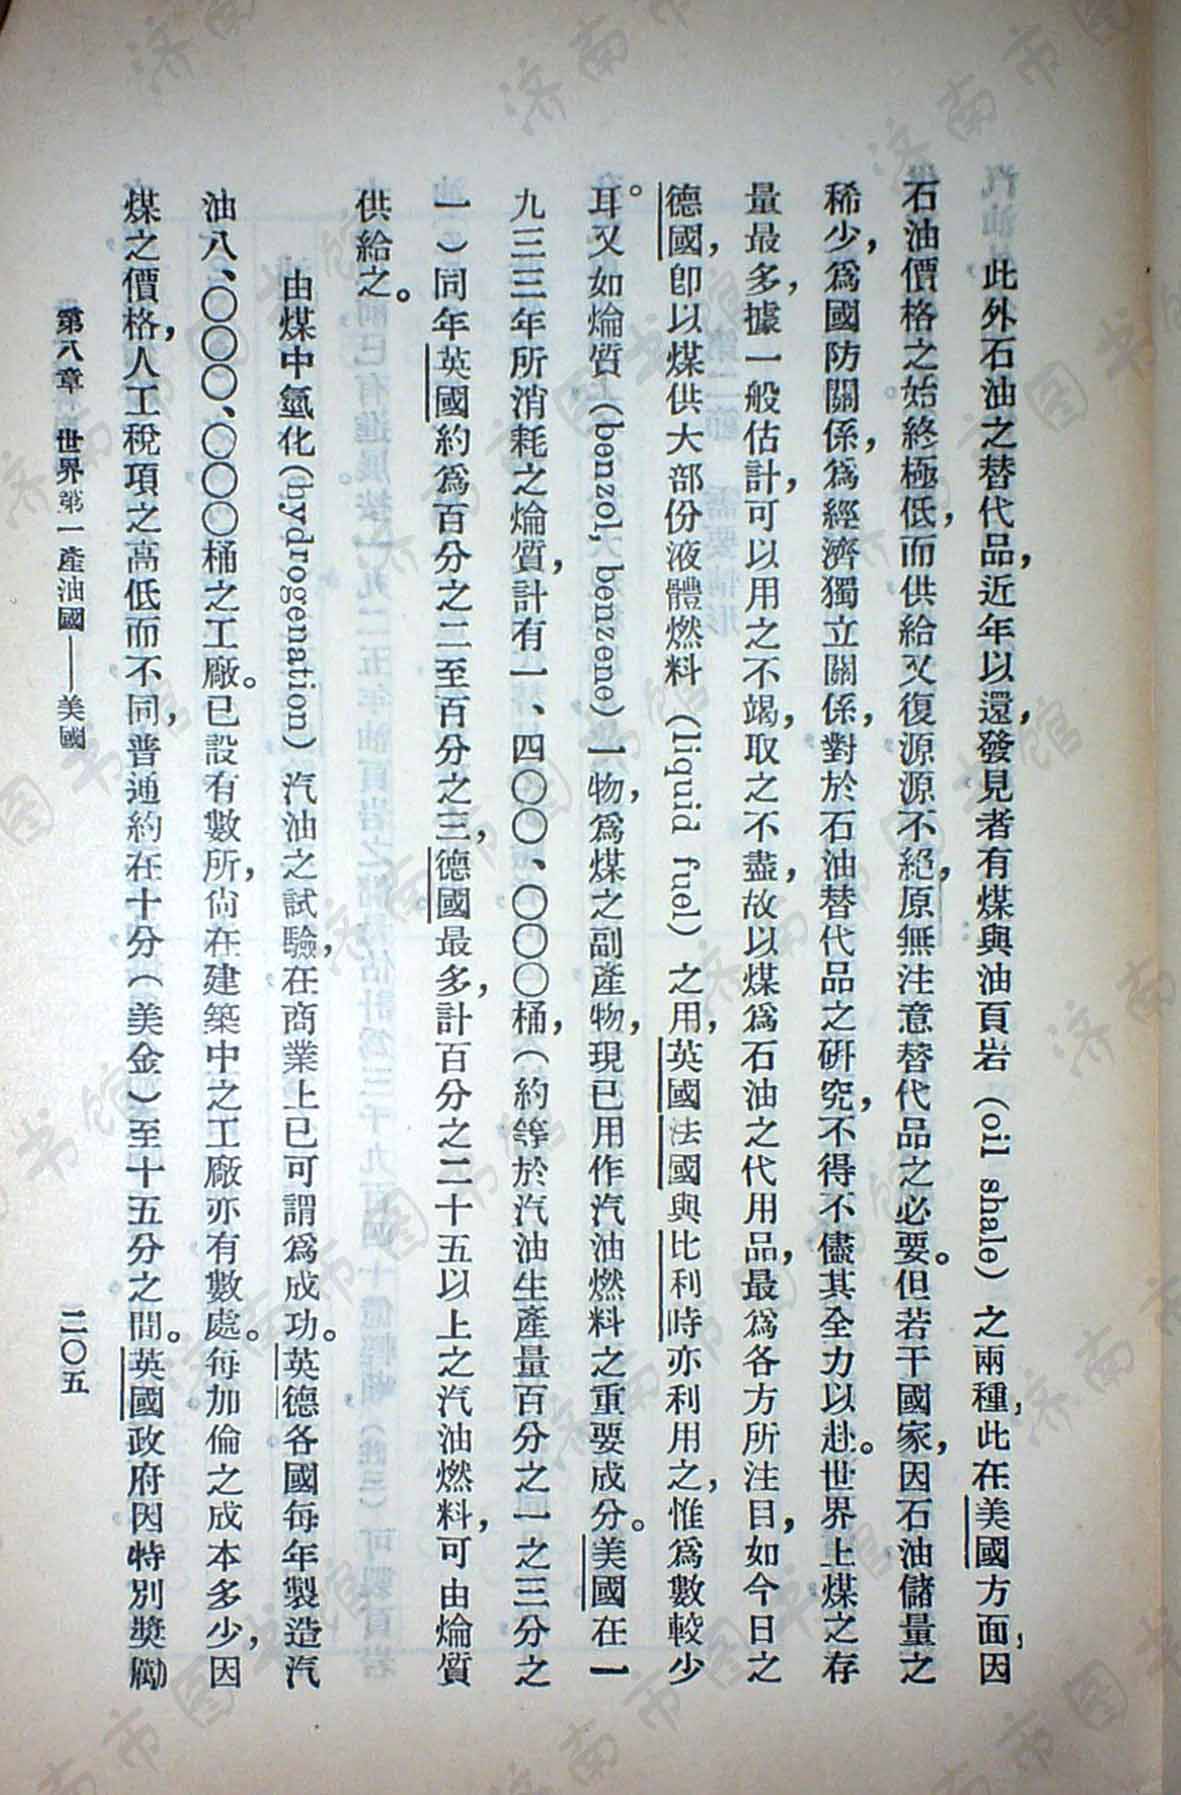 此外石油之替代品，近年以還，發見者有煤與油頁岩（oil shale）之兩種，此在美國方面，因
石油價格之始終極低，而供給又復源源不絕，原無注意替代品之必要。但若干國家，因石油儲量之
稀少，爲國防關係，爲經濟獨立關係，對於石油替代品之研究，不得不儘其全力以赴。世界上煤之存
量最多，據一般估計，可以用之不竭，取之不盡，故以煤爲石油之代用品，最爲各方所注目，如今日之
德國，卽以煤供大部份液體燃料（liquid fuel）之用，英國法國與比利時亦利用之，惟爲數較少
耳。又如熗質（benzol, benzene）一物，爲煤之副產物，現已用作汽油燃料之重要成分。美國在一
九三三年所消耗之熗質，計有一、四〇〇、〇〇〇桶，（約等於汽油生產量百分之一之三分之
一）同年英國約爲百分之二至百分之三，德國最多，計百分之二十五以上之汽油燃料，可由熗質
供給之。
由煤中氫化（hydrogenation）汽油之試驗，在商業上已可謂爲成功。英德各國每年製造汽
油八、〇〇〇、〇〇〇桶之工廠。已設有數所，尙在建築中之工廠亦有數處。每加倫之成本多少，因
煤之價格，人工稅項之高低而不同，普通約在十分（美金）至十五分之間。英國政府因特別奬勵
第八章 世界第一產油國——美國
二〇五
济南市图书馆